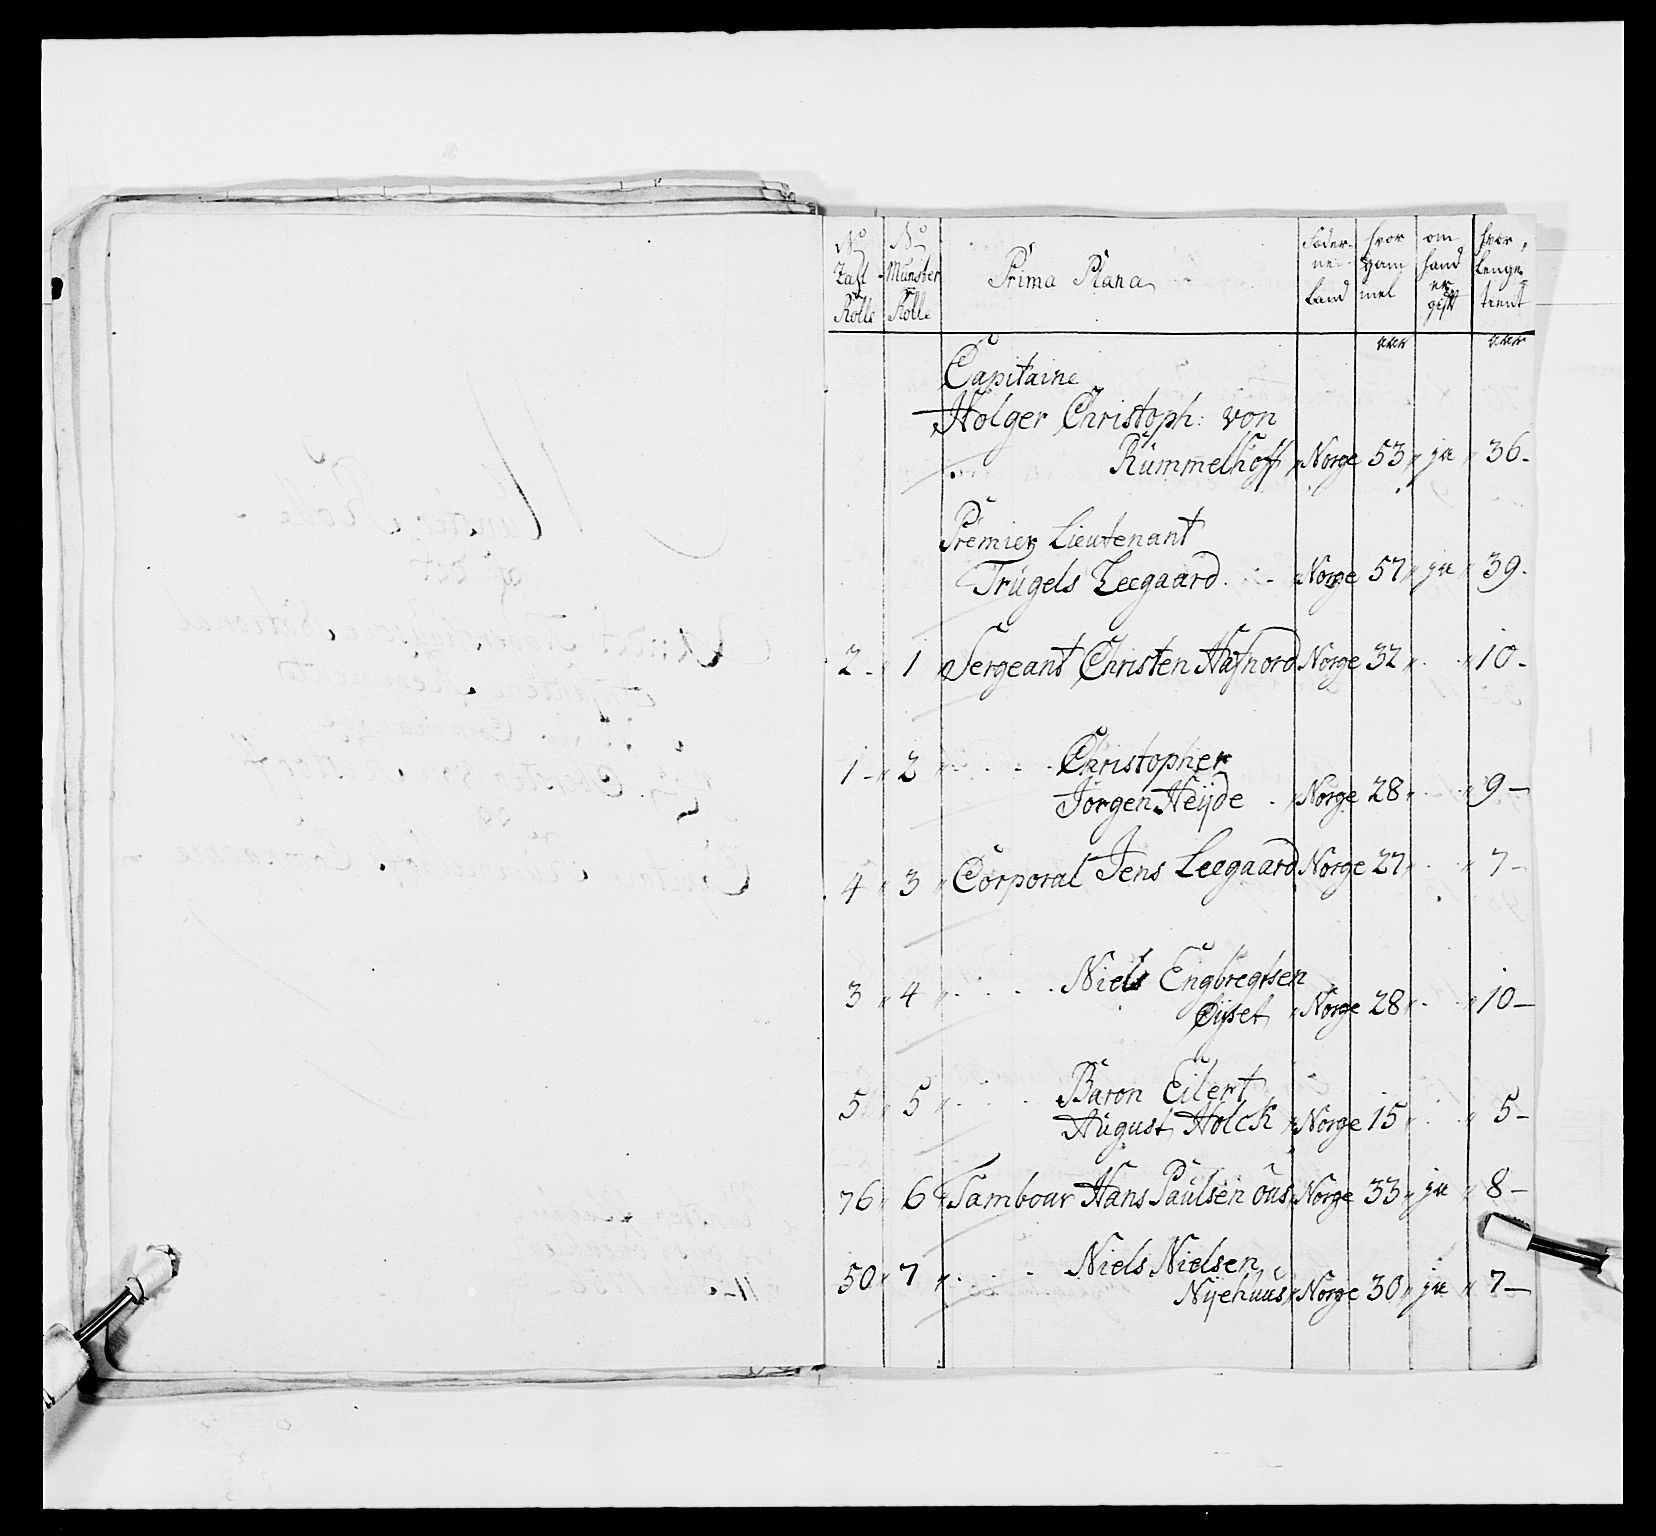 No Zall Rolle | No Munster Rolle | Prima Plana | Föder- ne land | hvor gam mel | om hand er gift | hvor lenge tient
aar | aar
Capitaine
Holger Christoph: von
Rummelhoff „ Norge 53 „ ja „ 36 -
Premier Lieutenant
Trugels Leegaard . . - „ Norge 57 „ ja „ 39 -
2 - „ 1 „ Sergeant Christen Hafnord Norge 32 „ . . „ 10 -
1 - „ 2 „ . . . . Christopher
Jörgen Heijde . „ Norge 28 „ . . „ 9 -
4 „ 3 „ Corporal Jens Leegaard Norge 27 „ . . „ 7 -
3 „ 4 „ . . . . Niels Engbregtsen
Öijset „ Norge 28 „ . . „ 10 -
5 „ 5 „ . . . Baron Eilert
August Holck „ Norge 15 „ . . „ 5 -
76 „ 6 „ Tambour Hans Paulsen Öus Norge 33 „ ja „ 8 -
50 „ 7 „ . . . Niels Nielsen
Nijehuus „ Norge 30 „ ja „ 7 -